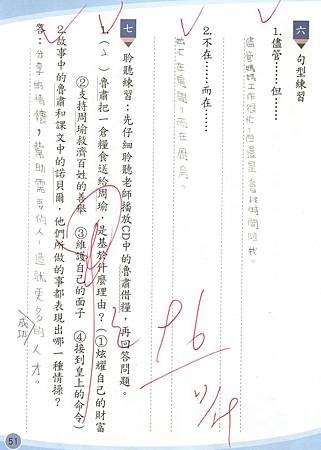 六 句型練習
1.儘管……但……
儘管媽媽工作很忙,但還是會找時間陪我。
2.不在……而在……
不在房間,而在廚房。
七 聆聽練習:先仔細聆聽老師播放CD中的魯肅借糧,再回答問題。
1.(2)魯肅把一倉糧食送給周瑜,是基於什麼理由?(①炫耀自己的財富
②支持周瑜救濟百姓的善舉 ③維護自己的面子 ④接到皇上的命令)
2.故事中的魯肅和課文中的諾貝爾,他們所做的事都表現出哪一種情操?
答:分享的情懷,幫助需要的人,造就更多的人才。
成功
96
51